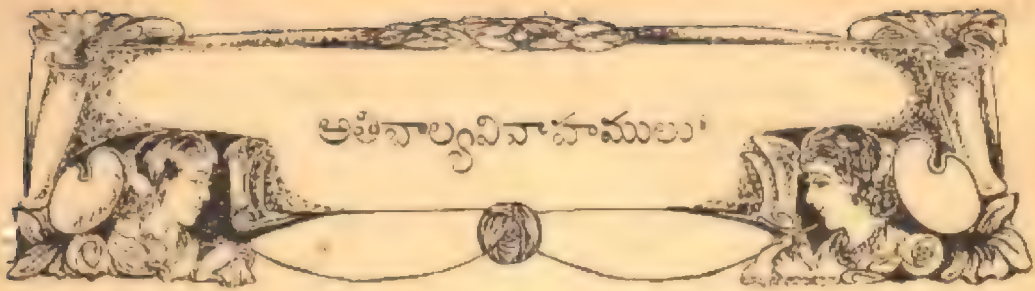 అతిబాల్యవివాహములు